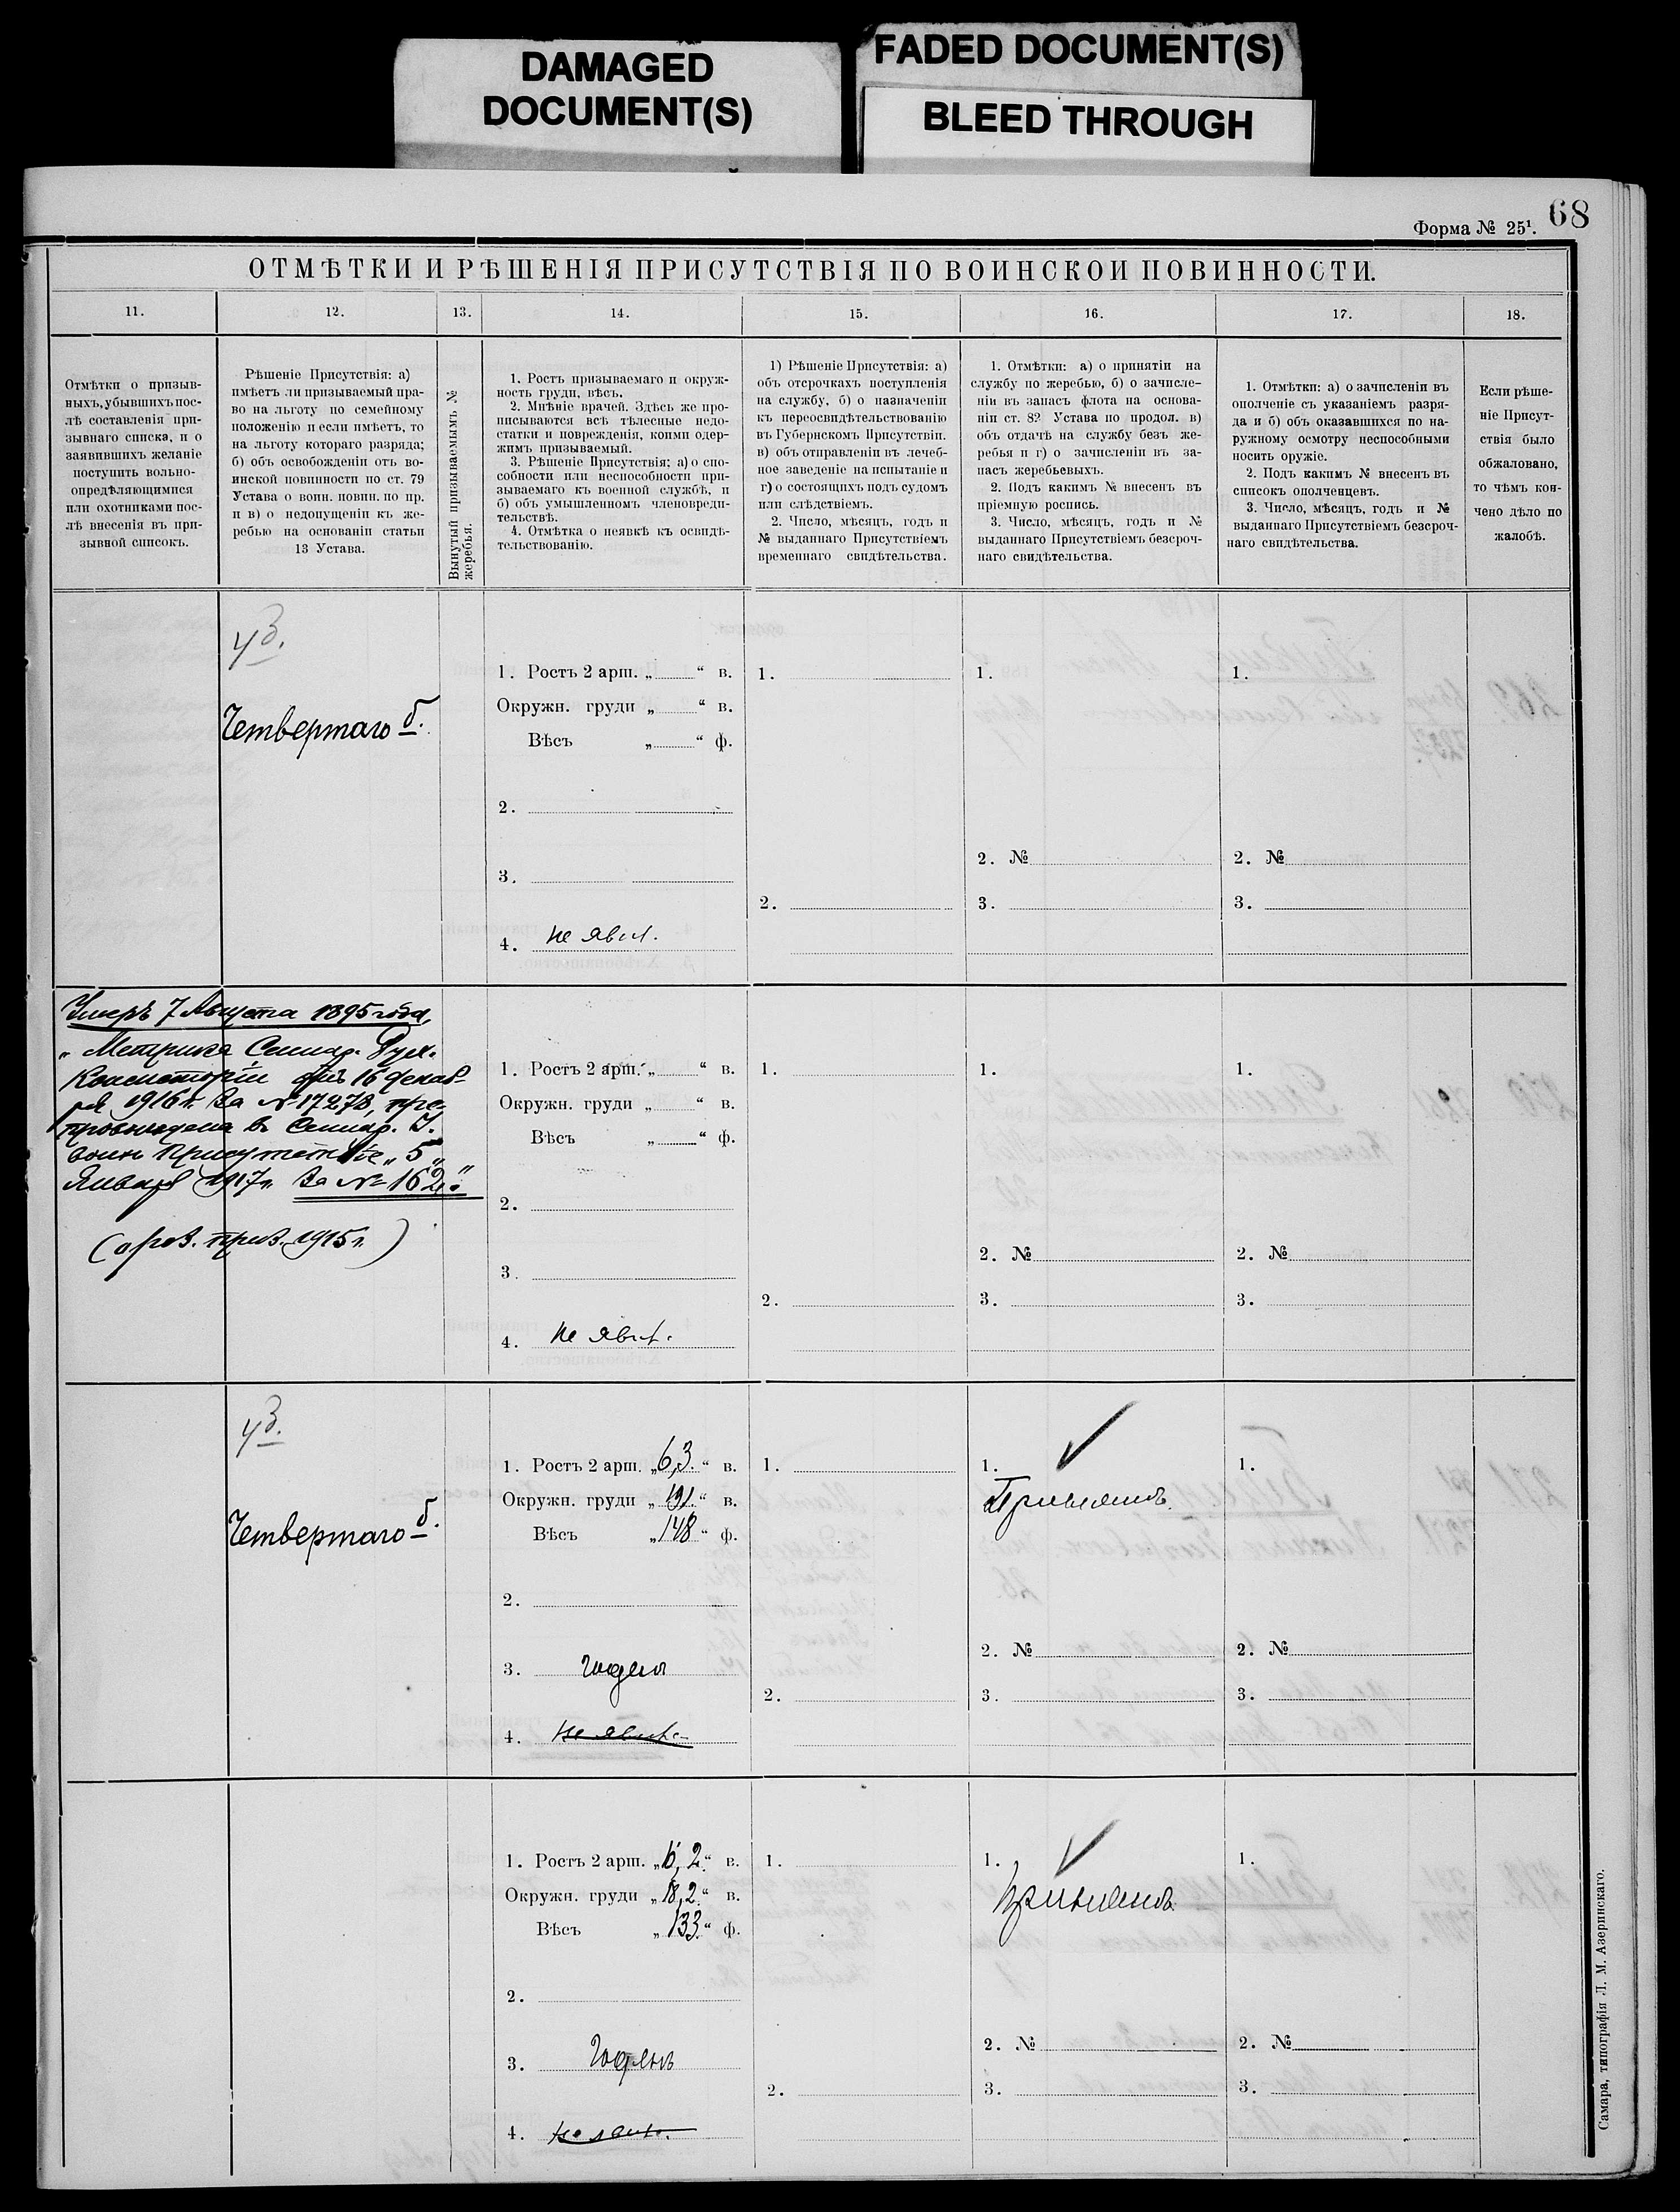 DAMAGED
DOCUMENT(S)
FADED DOCUMENT(S)
BLEED THROUGH
68
Форма № 25¹.
ОТМѢТКИ И РѢШЕНІЯ ПРИСУТСТВІЯ ПО ВОИНСКОЙ ПОВИННОСТИ.
11.
12.
13.
14.
15.
16.
17.
18.
Отмѣтки о призыв-
ныхъ, убывшихъ пос-
лѣ составленія при-
зывнаго списка, и о
заявившихъ желаніе
поступить вольно-
опредѣляющимися
или охотниками пос-
лѣ внесенія въ при-
зывной списокъ.
Рѣшеніе Присутствія: а)
имѣетъ ли призываемый пра-
во на льготу по семейному
положенію и если имѣетъ, то
на льготу котораго разряда;
б) объ освобожденіи отъ во-
инской повинности по ст. 79
Устава о воин. повин. по пр.
и в) о недопущеніи къ же-
ребью на основаніи статьи
13 Устава.
Вынутый призываемымъ №
жеребья.
1. Ростъ призываемаго и окруж-
ность груди, вѣсъ.
2. Мнѣніе врачей. Здѣсь же про-
писываются всѣ тѣлесные недо-
статки и поврежденія, коими одер-
жимъ призываемый.
3. Рѣшеніе Присутствія; а) о спо-
собности или неспособности при-
зываемаго къ военной службѣ, и
б) объ умышленномъ членовреди-
тельствѣ.
4. Отмѣтка о неявкѣ къ освидѣ-
тельствованію.
1) Рѣшеніе Присутствія: а)
объ отсрочкахъ поступленія
на службу, б) о назначеніи
къ переосвидѣтельствованію
въ Губернскомъ Присутствіи.
в) объ отправленіи въ лечеб-
ное заведеніе на испытаніе и
г) о состоящихъ подъ судомъ
или слѣдствіемъ.
2. Число, мѣсяцъ, годъ и
№ выданнаго Присутствіемъ
временнаго свидѣтельства.
1. Отмѣтки: а) о принятіи на
службу по жеребью, б) о зачисле-
ніи въ запасъ флота на основа-
ніи ст. 82 Устава по продол. в)
объ отдачѣ на службу безъ же-
ребья и г) о зачисленіи въ за-
пасъ жеребьевыхъ.
2. Подъ какимъ № внесенъ въ
пріемную роспись.
3. Число, мѣсяцъ, годъ и №
выданнаго Присутствіемъ безсроч-
наго свидѣтельства.
1. Отмѣтки: а) о зачисленіи въ
ополченіе съ указаніемъ разря-
да и б) объ оказавшихся по на-
ружному осмотру неспособными
носить оружіе.
2. Подъ какимъ № внесенъ въ
списокъ ополченцевъ.
3. Число, мѣсяцъ, годъ и №
выданнаго Присутствіемъ безсроч-
наго свидѣтельства.
Если рѣше-
ніе Присут-
ствія было
обжаловано,
то чѣмъ кон-
чено дѣло по
жалобѣ.
Четвертаго б.
1. Ростъ 2 арш. „ “ в.
Окружн. груди „ “ в.
Вѣсъ „ “ ф.
2.
3.
4. не явил.
1.
2.
1.
2. №
3.
1.
2. №
3.
Умеръ 7 Августа 1895 года,
Метрика Самар. Дух.
Консисторіи отъ 16 декаб-
ря 1916 г. за № 17278, пре-
провождена въ Самар. У.
воин. Присутствіе „5„
Января 1917 г. за № 162."
( приз. 1915 г. )
1. Ростъ 2 арш. „ “ в.
Окружн. груди „ “ в.
Вѣсъ „ “ ф.
2.
3.
4. не явил.
1.
2.
1.
2. №
3.
1.
2. №
3.
Четвертаго б.
1. Ростъ 2 арш. „6,3.“ в.
Окружн. груди „191.“ в.
Вѣсъ „148“ ф.
2.
3. годен
4. не явил.
1.
2.
1.
Принятъ.
2. №
3.
1.
2. №
3.
1. Ростъ 2 арш. „6,2.“ в.
Окружн. груди „18,2.“ в.
Вѣсъ „133.“ ф.
2.
3. Годенъ
4. не явил.
1.
2.
1.
Принятъ.
2. №
3.
1.
2. №
3.
Самара, типографія Л. М. Азеринскаго.